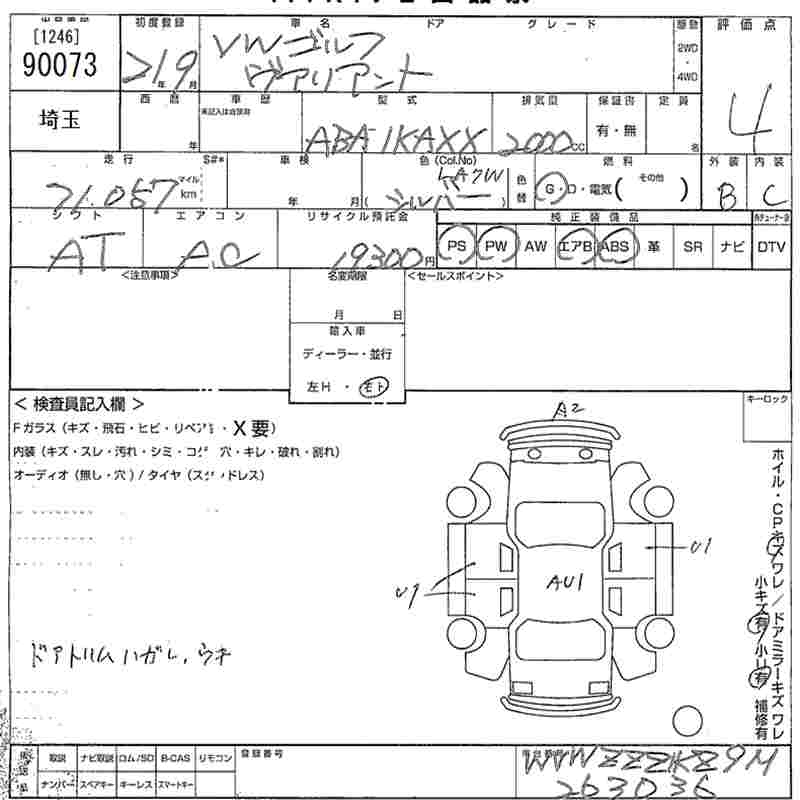 [1246]
90073
埼玉
初度登録
21年9月
車名
VWゴルフ
ヴァリアント
ドア
グレード
駆動
2WD
・
4WD
評価点
4
西暦
年
車歴
未記入は自家用
型式
ABA 1KAXX
排気量
2000cc
保証書
有・無
定員
名
走行
21.057
マイル
km
S#*
車検
年 月
色(Col.No)
LA7W
(シルバー)
色替
燃料
G・D・電気( その他 )
外装
B
内装
C
シフト
AT
エアコン
AC
リサイクル預託金
19300円
純正装備品
PS PW AW エアB ABS 革 SR ナビ DTV
<注意事項>
名変期限
月 日
輸入車
ディーラー・並行
左H ・ 右H
<セールスポイント>
キーロック
< 検査員記入欄 >
Fガラス(キズ・飛石・ヒビ・リペア ・X要)
内装(キズ・スレ・汚れ・シミ・コゲ 穴・キレ・破れ・割れ)
オーディオ(無し・穴)/タイヤ(スタッドレス)
A2
U1
U1
AU1
ドアトリムハガレ、ウキ
ホイル・CPキズワレ/ドアミラーキズワレ
小キズ有 小凹有 補修有
取説 ナビ取説 ロム/SD B-CAS リモコン
ナンバー スペアキー キーレス スマートキー
登録番号
WVWZZZ1KZ9M
263036